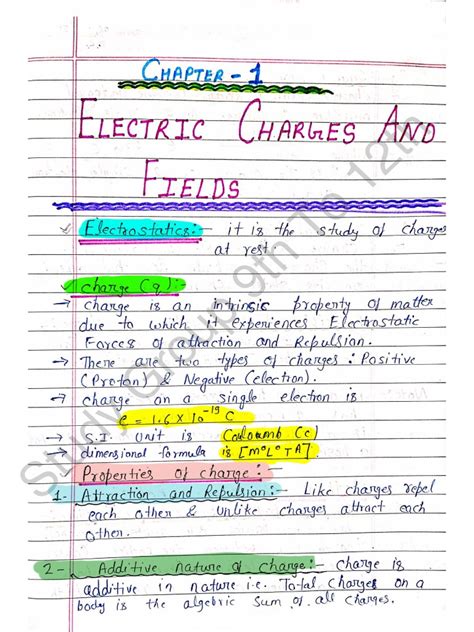 CHAPTER - 1
ELECTRIC CHARGES AND
FIELDS
Electrostatics:- it is the study of charges
at rest.
charge (q):-
→ charge is an intrinsic property of matter
due to which it experiences Electrostatic
Forces of attraction and Repulsion.
→ There are two types of charges: Positive
(Proton) & Negative (electron).
→ charge on a single electron is
e = 1.6 x 10⁻¹⁹ C
→ S.I. Unit is Coulomb (c)
→ dimensional formula is [M⁰L⁰TA]
Properties of charge:-
1- Attraction and Repulsion:- Like charges repel
each other & Unlike charges attract each
other.
2- Additive nature of charge:- charge is
additive in nature i.e. Total charges on a
body is the algebric sum of all charges.
Study Group 9th To 12th